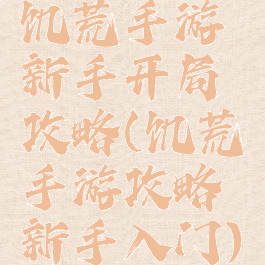 饥荒手游
新手开局
攻略(饥荒
手游攻略
新手入门)